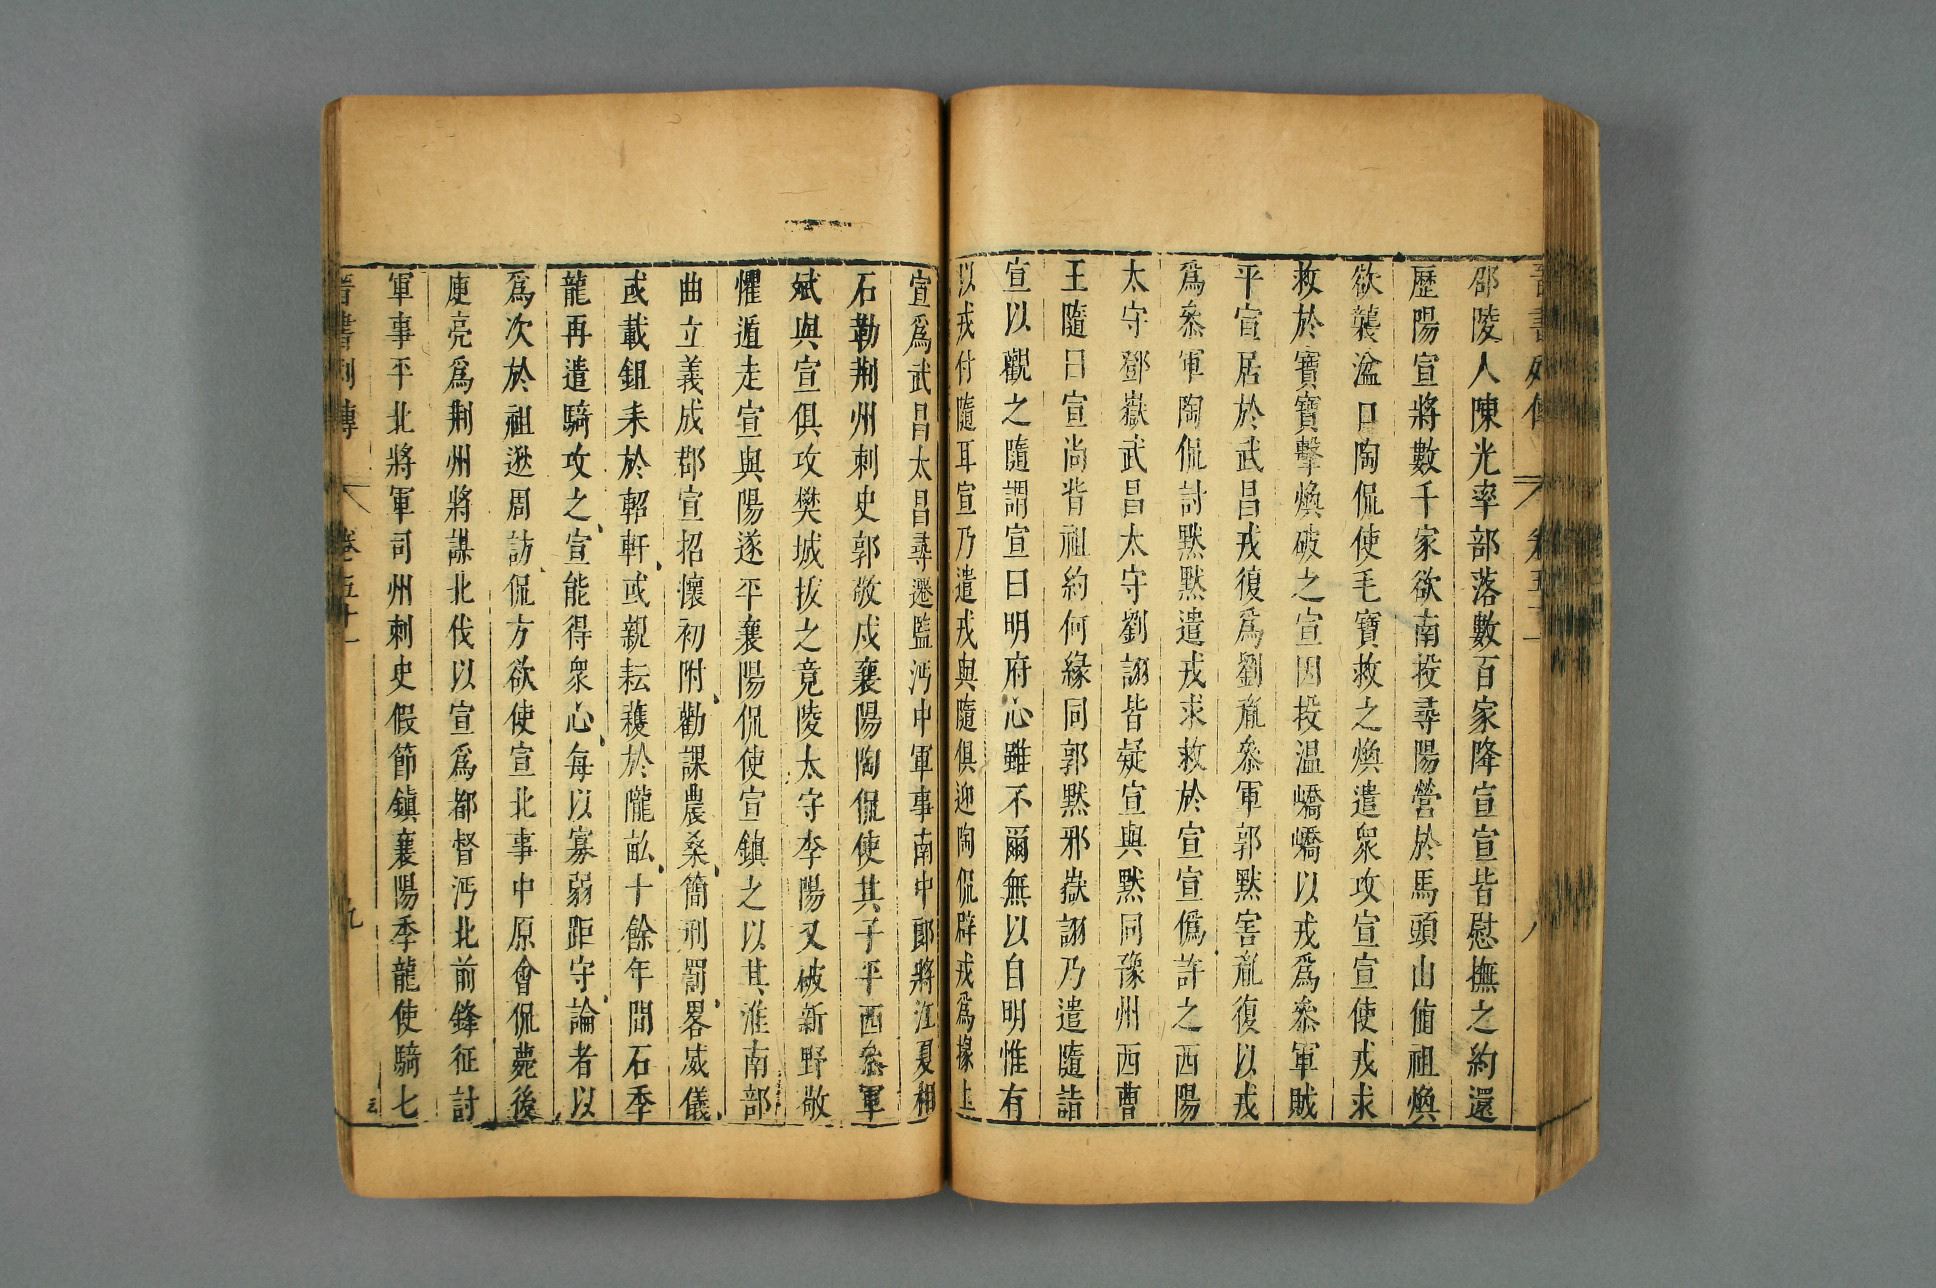 邵陵人陳光率部落數百家降宣宣皆慰撫之約還
歷陽宣將數千家欲南投尋陽營於馬頭山値祖煥
欲襲湓口陶侃使毛寶救之煥遣衆攻宣宣使戎求
救於寶寶擊煥破之宣因投温嶠嶠以戎爲叅軍賊
平宣居於武昌戎復爲劉胤叅軍郭默害胤復以戎
爲叅軍陶侃討默默遣戎求救於宣宣僞許之西陽
太守鄧嶽武昌太守劉詡皆疑宣與默同豫州西曹
王隨曰宣尚背祖約何緣同郭默邪嶽詡乃遣隨詣
宣以觀之隨謂宣曰明府心雖不爾無以自明惟有
以戎付隨耳宣乃遣戎與隨俱迎陶侃辟戎爲掾上
宣爲武昌太昌尋遷監沔中軍事南中郎將江夏相
石勒荆州刺史郭敬戍襄陽陶侃使其子平西叅軍
斌與宣俱攻樊城拔之竟陵太守李陽又破新野敬
懼遁走宣與陽遂平襄陽侃使宣鎮之以其淮南部
曲立義成郡宣招懷初附勸課農桑簡刑罰畧威儀
或載鉏耒於軺軒或親耘穫於隴畝十餘年間石季
龍再遣騎攻之宣能得衆心每以寡弱距守論者以
爲次於祖逖周訪侃方欲使宣北事中原會侃薨後
庾亮爲荆州將謀北伐以宣爲都督沔北前鋒征討
軍事平北將軍司州刺史假節鎮襄陽季龍使騎七
晉書列傳 卷五十一 九